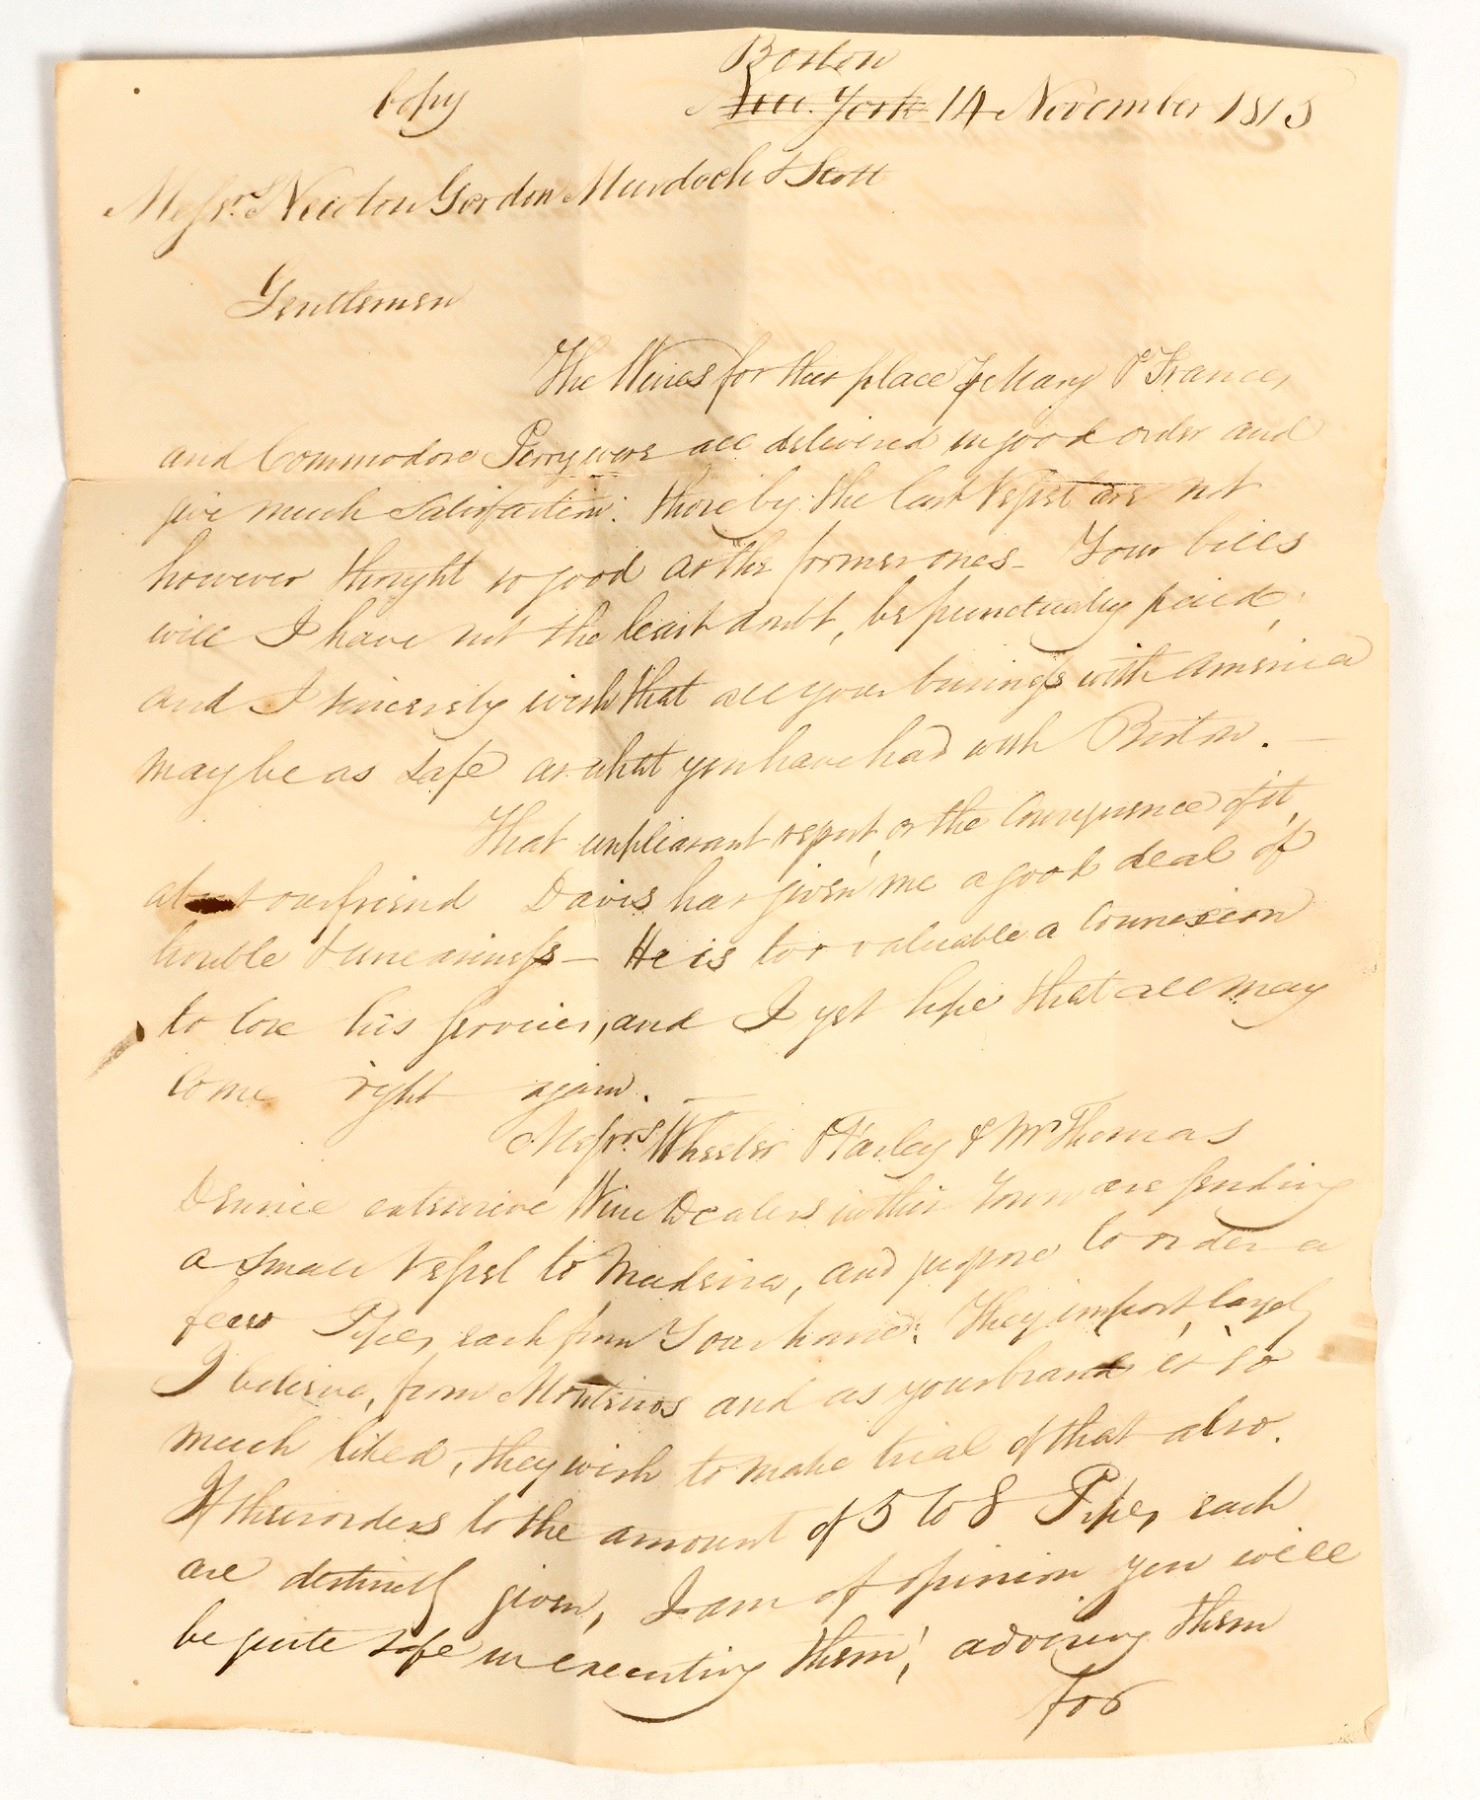 Boston
Copy New York 14 November 1815
Messrs Newton Gordon Murdoch & Scott
Gentlemen
The Wines for this place Mary & Frances
and Commodore Perry were all delivered in good order and
give much satisfaction: those by the last Vessel are not
however thought so good as the former ones – Your bills
will I have not the least doubt, be punctually paid,
and I sincerely wish that all your business with America
may be as safe as what you have had with Boston. –
That unpleasant report or the Consequence of it,
about our friend Davis has given me a good deal of
trouble & uneasiness – He is too valuable a Connexion
to lose his services, and I yet hope that all may
come right again. –
Messrs Wheeler & Farley & Mr Thomas
Dennie extensive Wine Dealers in this Town are sending
a small Vessel to Madeira, and propose to order a
few Pipes each from Your house. They import largely
I believe, from Monteiros and as your brand is so
much liked, they wish to make trial of that also.
If their orders to the amount of 5 to 8 Pipes each
are distinctly given, I am of opinion you will
be quite safe in executing them, advising them
for